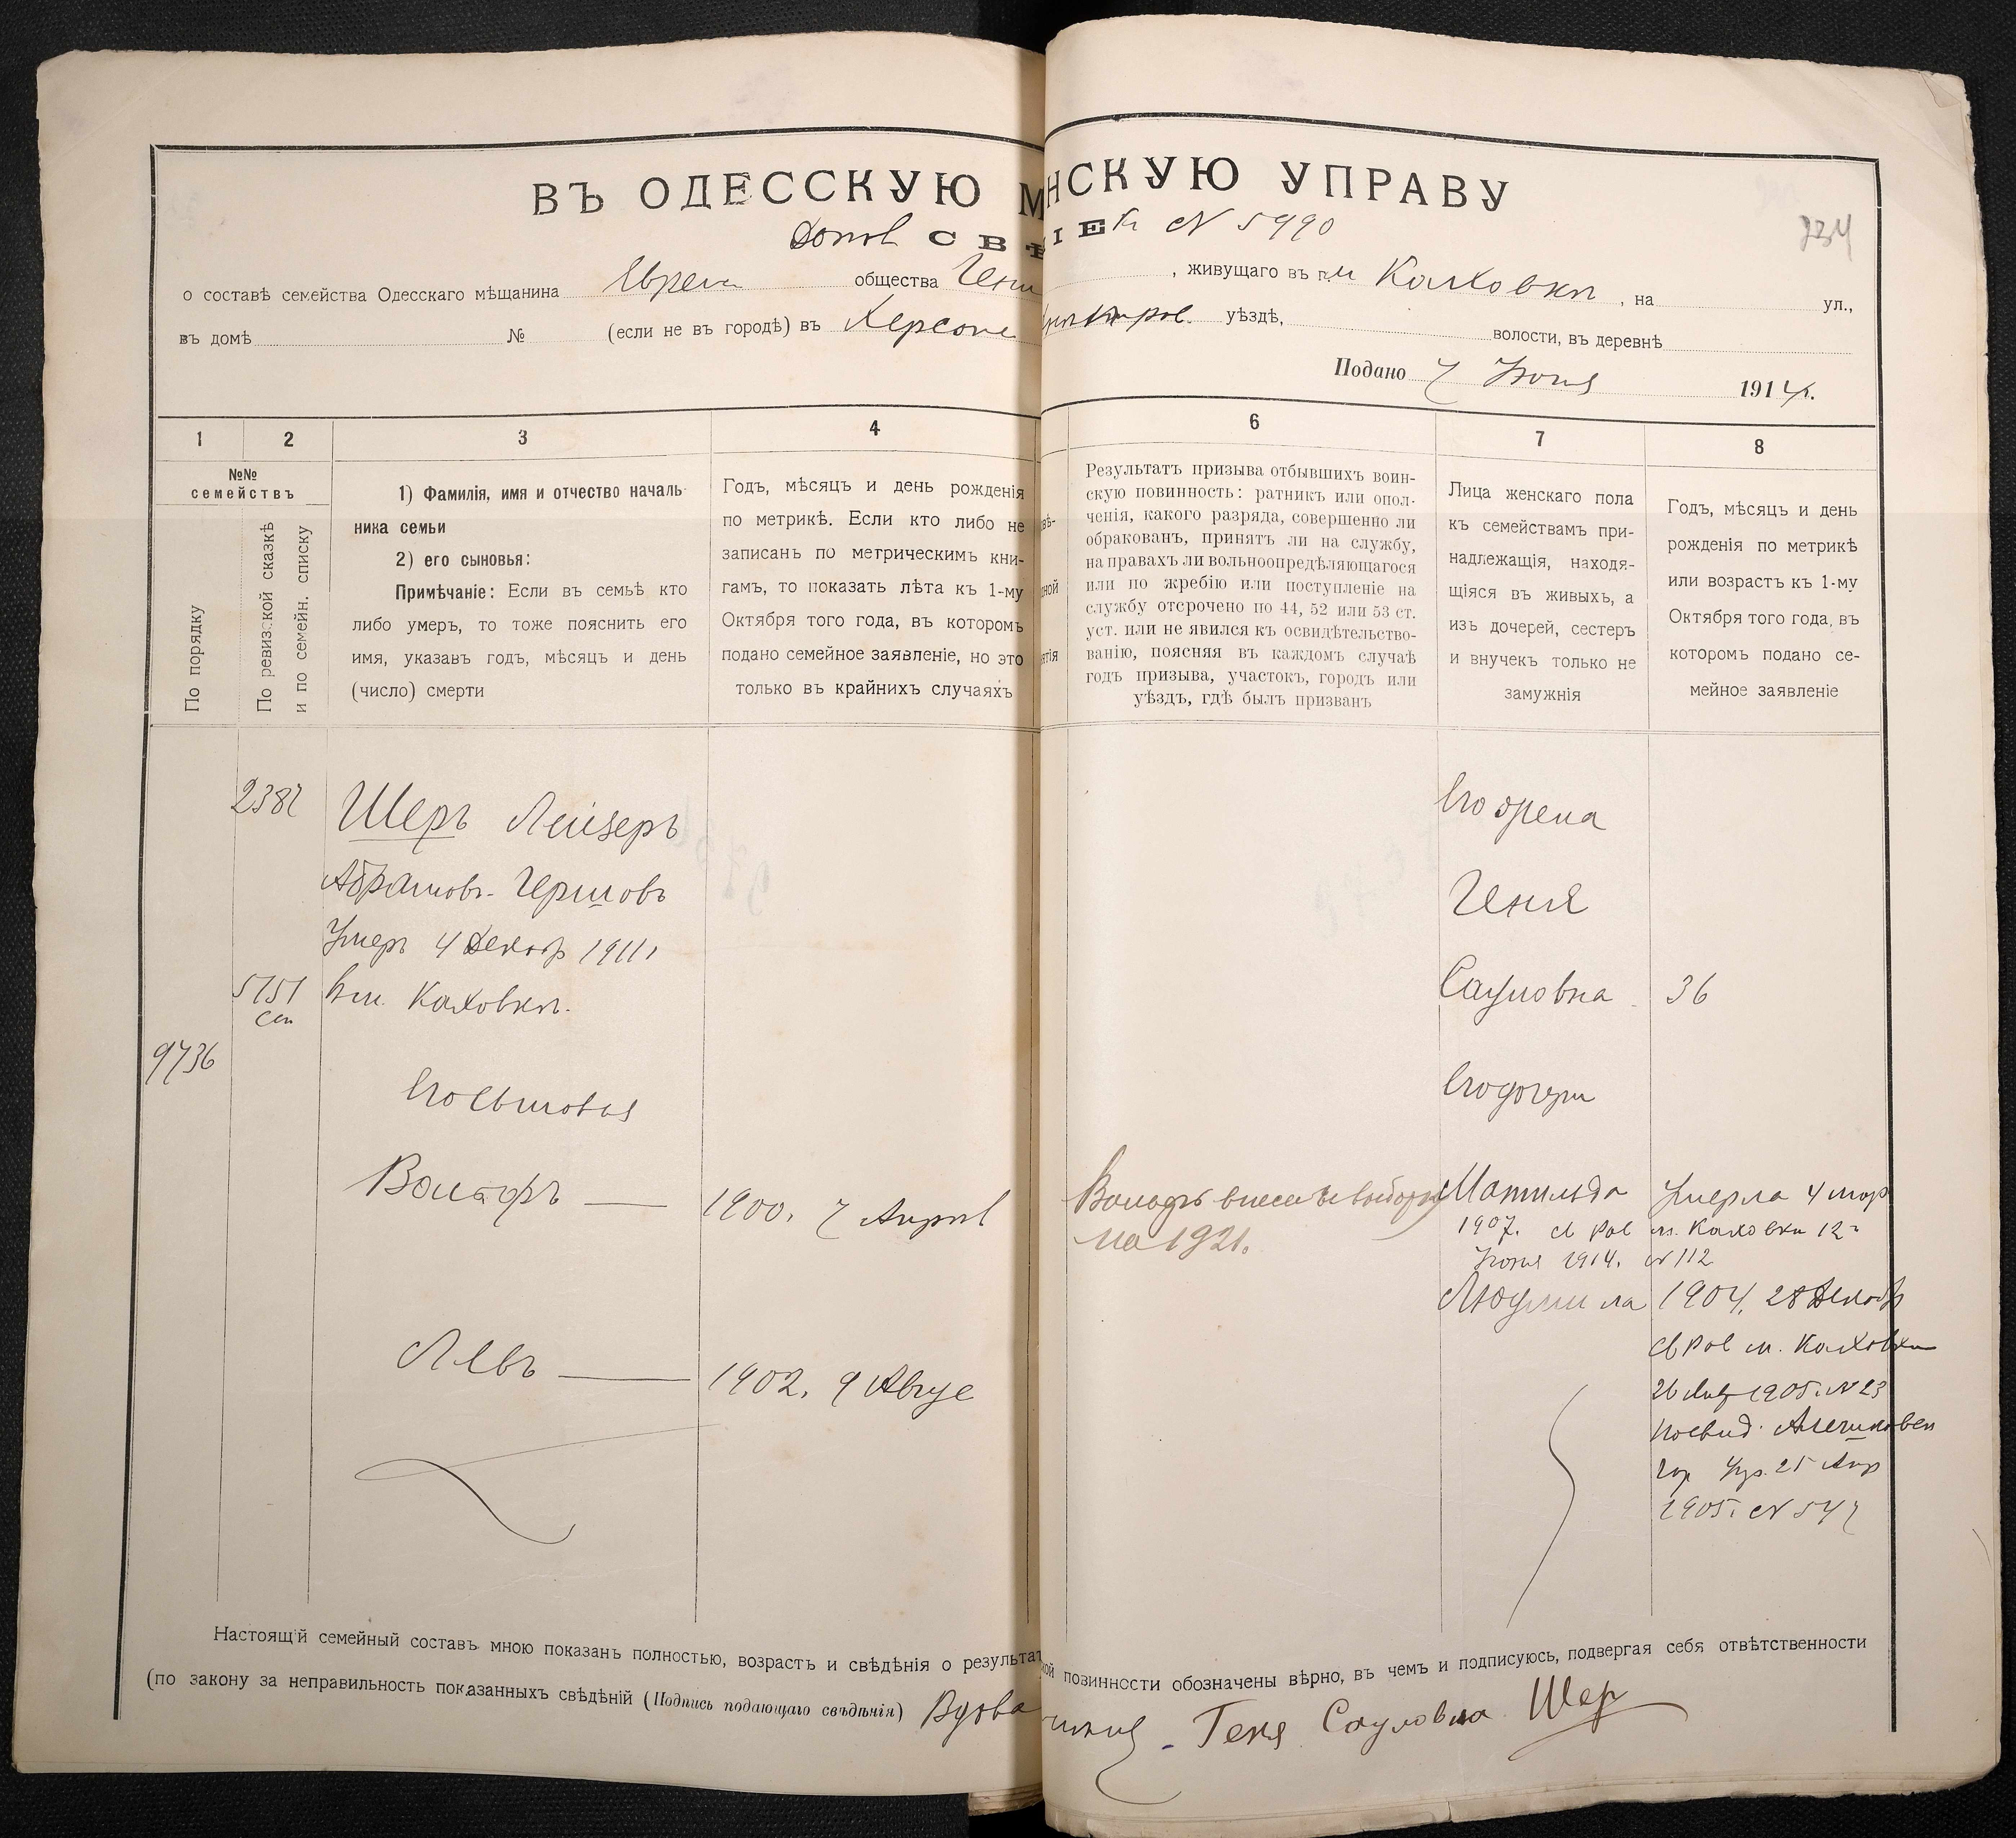 234
ВЪ ОДЕССКУЮ М НСКУЮ УПРАВУ
СВѢ ІЕ № 5990
о составѣ семейства Одесскаго мѣщанина общества , живущаго въ м Каховки , на ул.,
въ домѣ № (если не въ городѣ) въ Херсоне уѣздѣ, волости, въ деревнѣ
Подано 7 Іюня 1914 г.
1 2 3 4 6 7 8
№№
семействъ
По порядку
По ревизской сказкѣ
и по семейн. списку
1) Фамилія, имя и отчество началь-
ника семьи
2) его сыновья:
Примѣчаніе: Если въ семьѣ кто
либо умеръ, то тоже пояснить его
имя, указавъ годъ, мѣсяцъ и день
(число) смерти
Годъ, мѣсяцъ и день рожденія
по метрикѣ. Если кто либо не
записанъ по метрическимъ кни-
гамъ, то показать лѣта къ 1-му
Октября того года, въ которомъ
подано семейное заявленіе, но это
только въ крайнихъ случаяхъ
Результатъ призыва отбывшихъ воин-
скую повинность: ратникъ или опол-
ченія, какого разряда, совершенно ли
обракованъ, принятъ ли на службу,
на правахъ ли вольноопредѣляющагося
или по жребію или поступленіе на
службу отсрочено по 44, 52 или 53 ст.
уст. или не явился къ освидѣтельство-
ванію, поясняя въ каждомъ случаѣ
годъ призыва, участокъ, городъ или
уѣздъ, гдѣ былъ призванъ
Лица женскаго пола
къ семействамъ при-
надлежащія, находя-
щіяся въ живыхъ, а
изъ дочерей, сестеръ
и внучекъ только не
замужнія
Годъ, мѣсяцъ и день
рожденія по метрикѣ
или возрастъ къ 1-му
Октября того года, въ
которомъ подано се-
мейное заявленіе
2382
Шеръ Лейзеръ
Абрамовъ-Гершовъ
Умеръ 4 Декабр 1911
5151 Вм. Каховки.
9736
Его сыновья
Вольфъ — 1900. 7 Апрѣл
Левъ — 1902. 9 Авгус
Вольфъ внесенъ
на 1921.
Его жена
Геня
Сауловна 36
Его дочери
Матильда Умерла 4 мар
1907. м. Каховки 12
Іюня 1914. №112
Людмила 1904, 28 Декабр
м. Каховки
26 1905. № 23
Алешковск
25 Апр
1905. № 547
Настоящій семейный составъ мною показанъ полностью, возрастъ и свѣдѣнія о результат ной повинности обозначены вѣрно, въ чемъ и подписуюсь, подвергая себя отвѣтственности
(по закону за неправильность показанныхъ свѣдѣній (Подпись подающаго свѣдѣнія) Вдова Геня Сауловна Шер